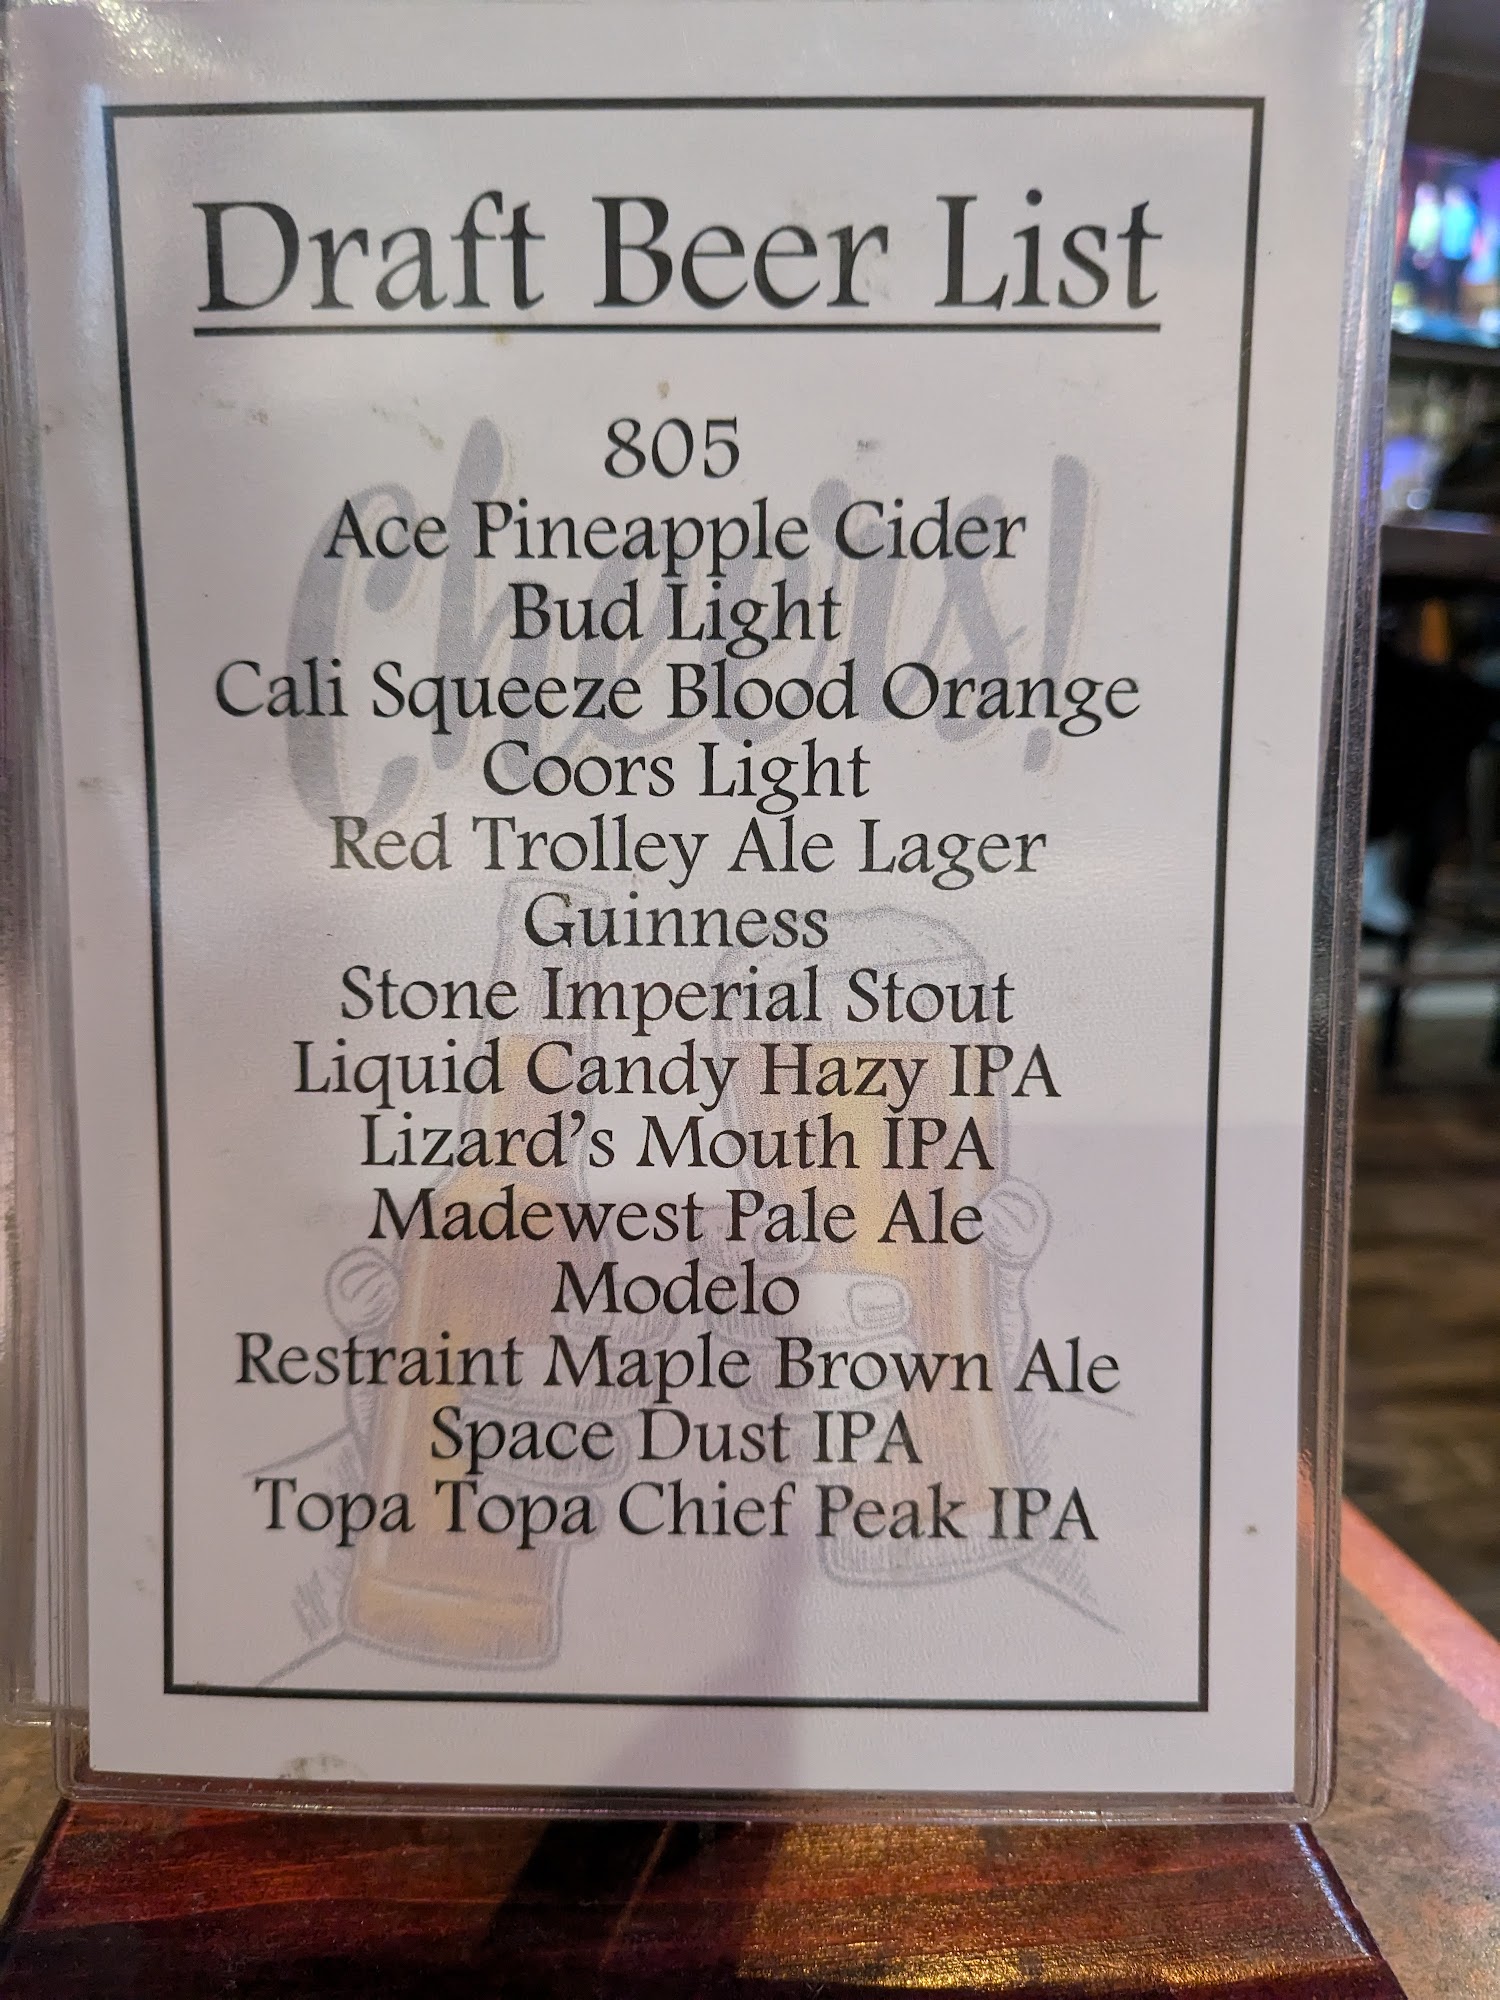 Draft Beer List
Cheers!
805
Ace Pineapple Cider
Bud Light
Cali Squeeze Blood Orange
Coors Light
Red Trolley Ale Lager
Guinness
Stone Imperial Stout
Liquid Candy Hazy IPA
Lizard's Mouth IPA
Madewest Pale Ale
Modelo
Restraint Maple Brown Ale
Space Dust IPA
Topa Topa Chief Peak IPA